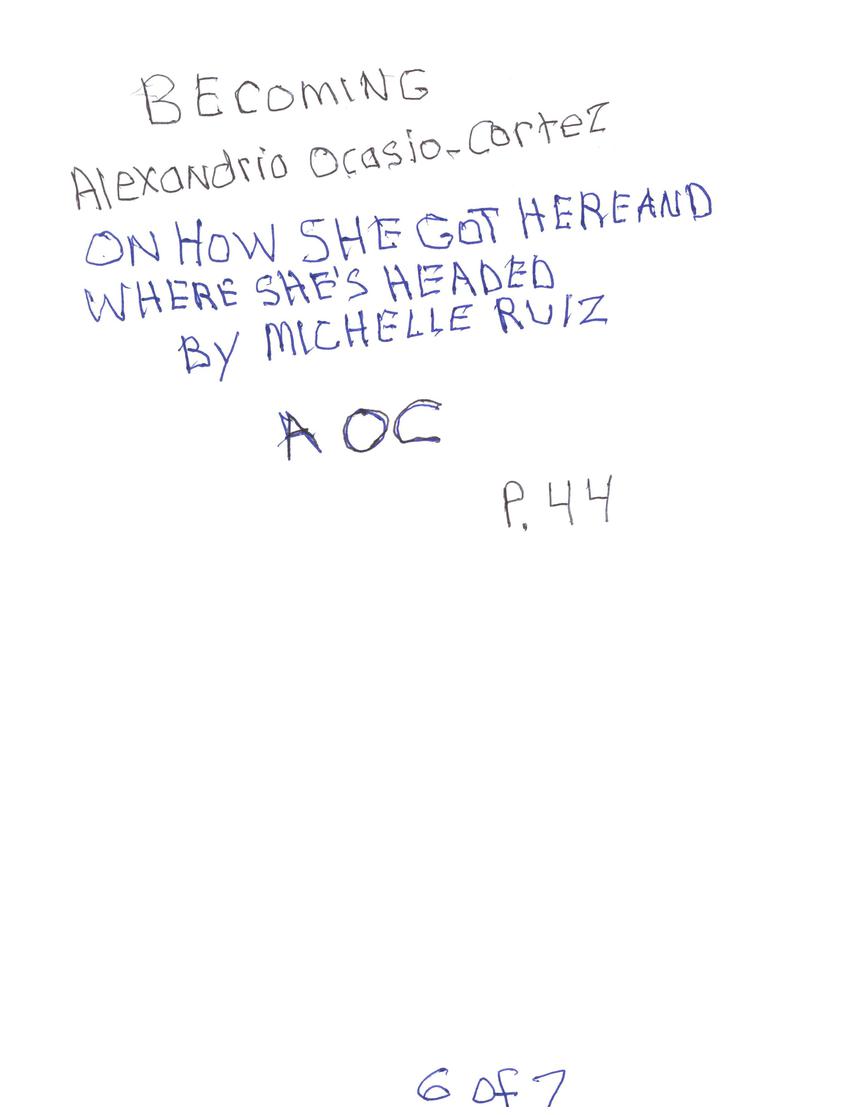 BECOMING
Alexandrio Ocasio-Cortez
ON HOW SHE GOT HERE AND
WHERE SHE'S HEADED
BY MICHELLE RUIZ
AOC
P. 44
6 of 7